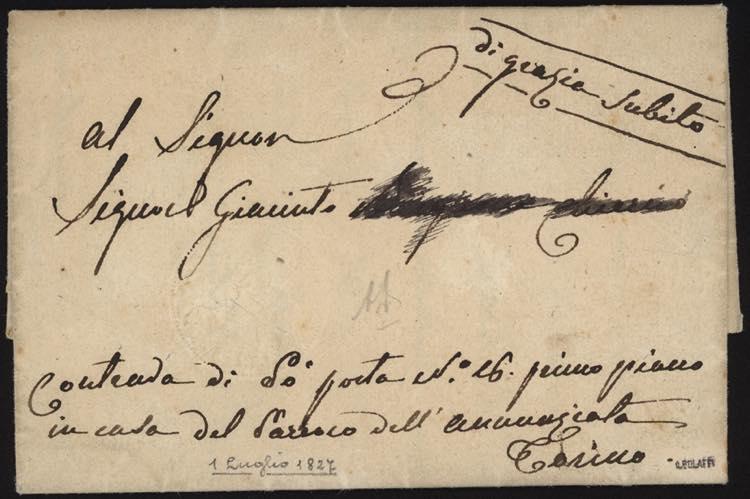 di grazia subito
Al Signor
Signor Giacinto
Contrada di Po' porta N.o 16. primo piano
in casa del Parroco dell'annunziata
Torino
1 Luglio 1827